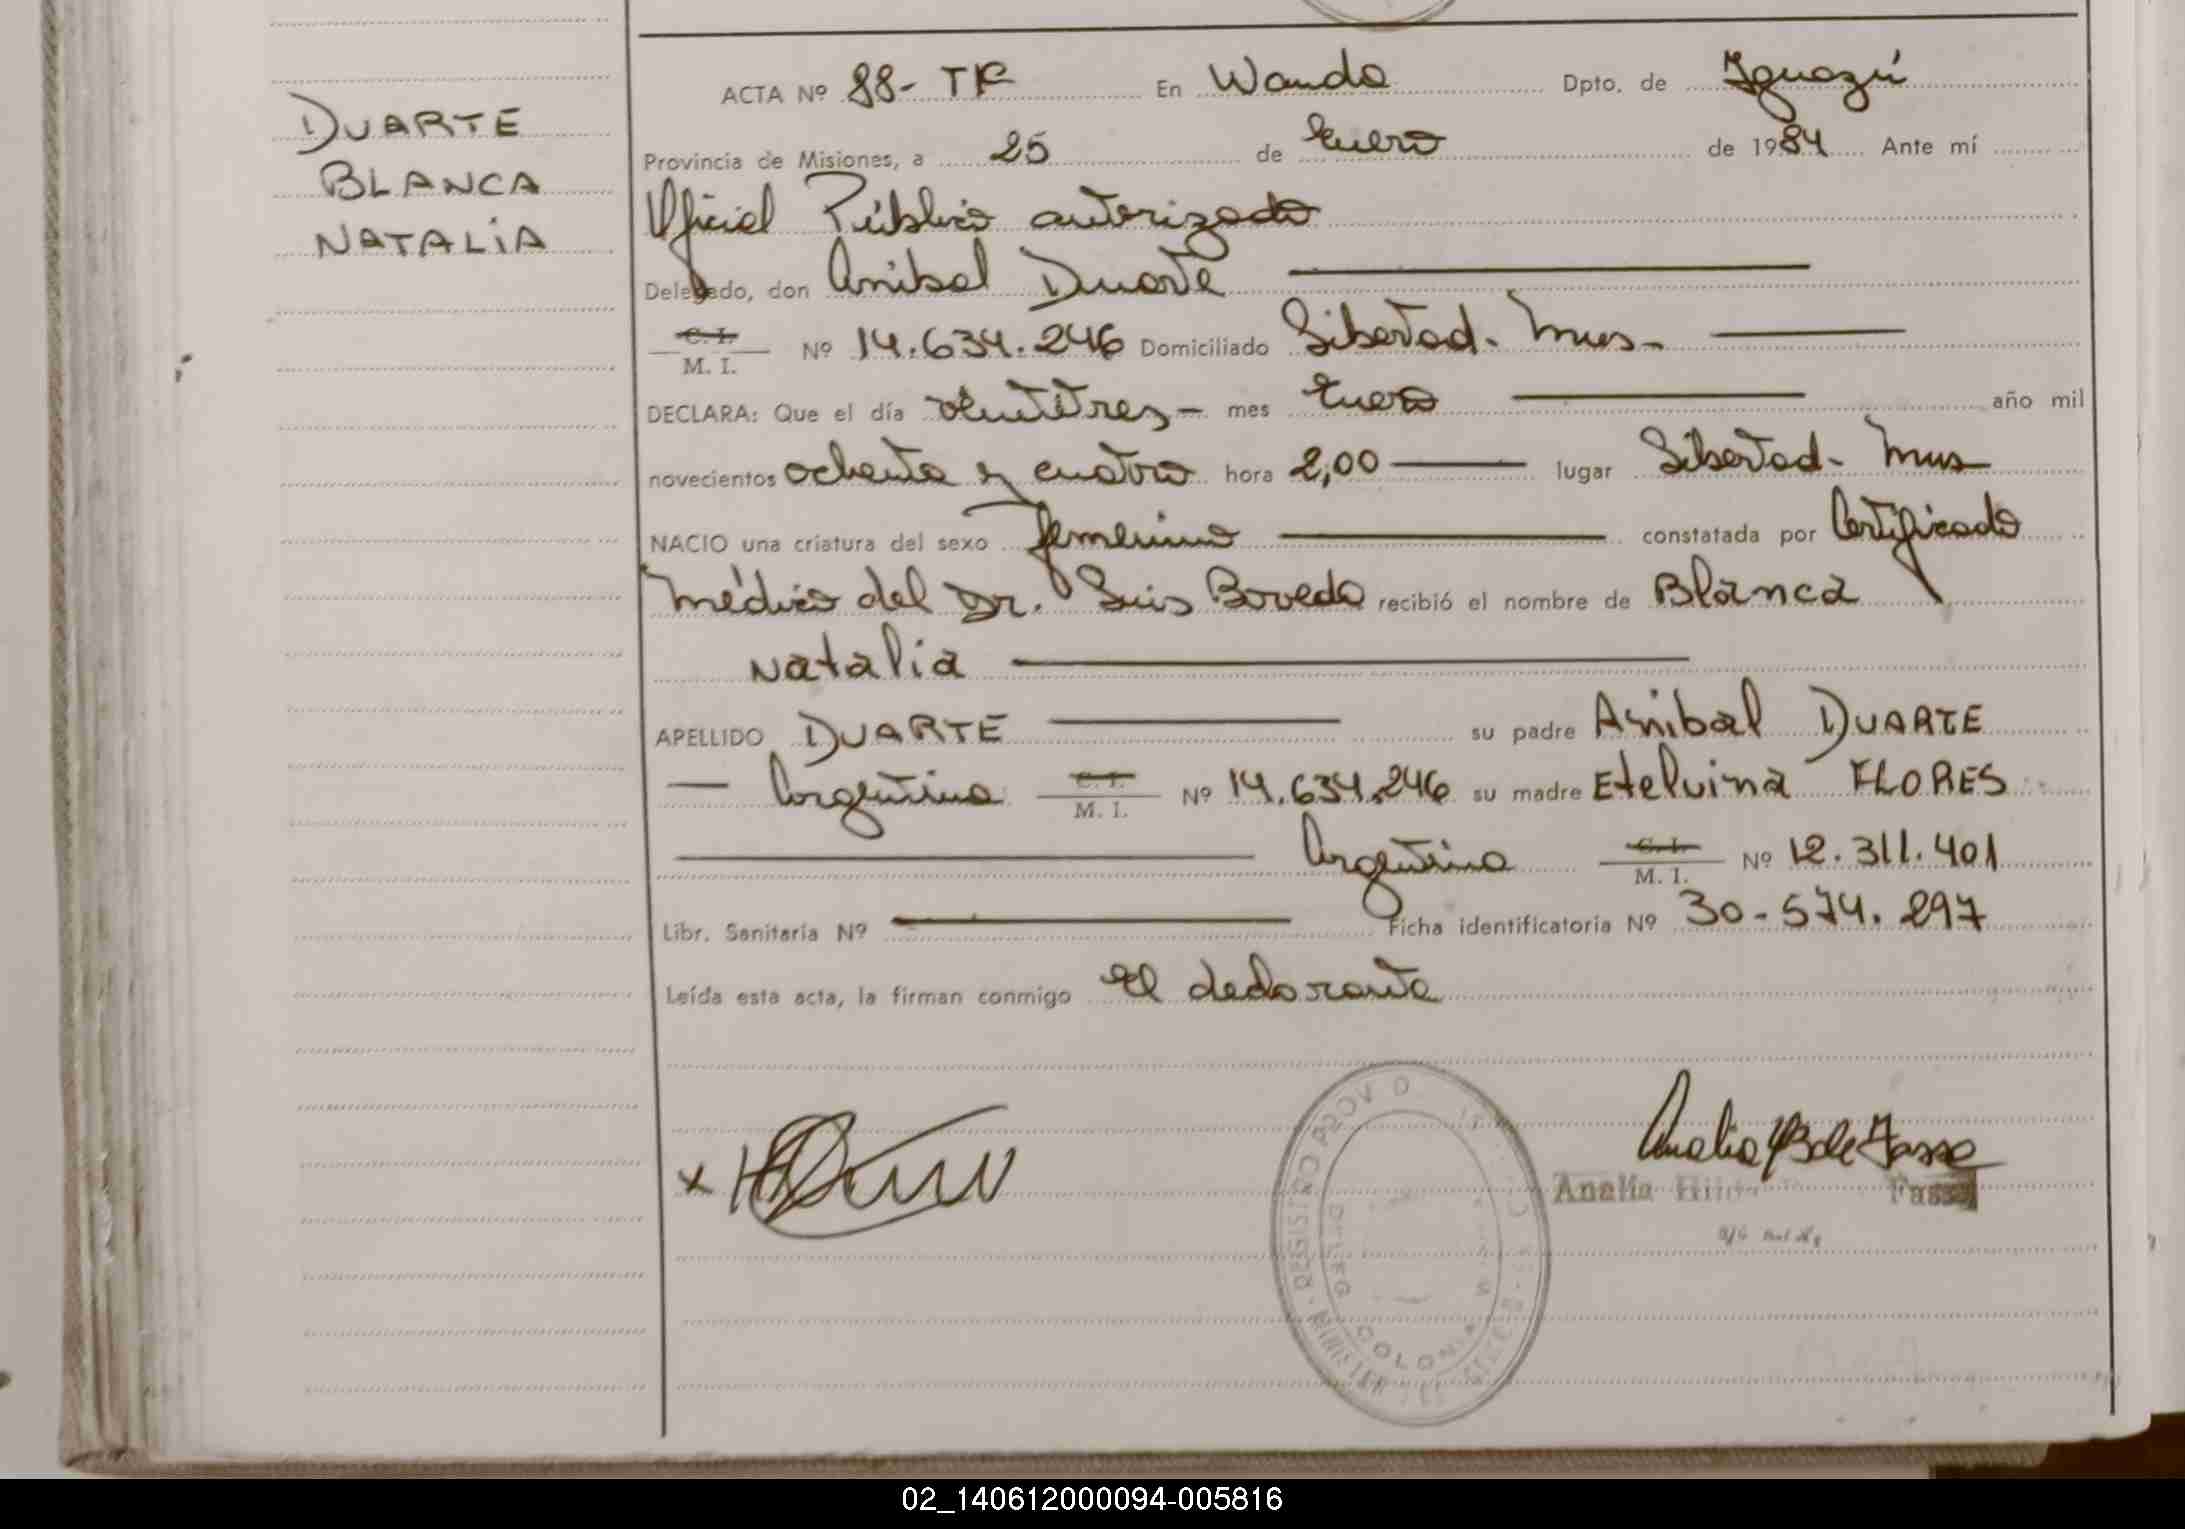 DUARTE
BLANCA
NATALIA
ACTA Nº 88- TF En Wanda Dpto. de Iguazú
Provincia de Misiones, a 25 de Enero de 1984 Ante mí
Oficial Público autorizado
Delegado, don Anibal Duarte
C. I.
M. I. Nº 14.634.246 Domiciliado Libertad- Mnes-
DECLARA: Que el día veintitres- mes Enero año mil
novecientos ochenta y cuatro hora 2,00 lugar Libertad- Mnes
NACIO una criatura del sexo femenino constatada por Certificado
Médico del Dr. Luis Boveda recibió el nombre de Blanca
Natalia
APELLIDO DUARTE su padre Anibal DUARTE
Argentina C. I.
M. I. Nº 14.634.246 su madre Etelvina FLORES
Argentina C. I.
M. I. Nº 12.311.401
Libr. Sanitaria Nº Ficha identificatoria Nº 30-574.297
Leída esta acta, la firman conmigo El declarante
x
REGISTRO PROV D
DELEG
COLONIA
Analia
Analia Fasse
02_140612000094-005816